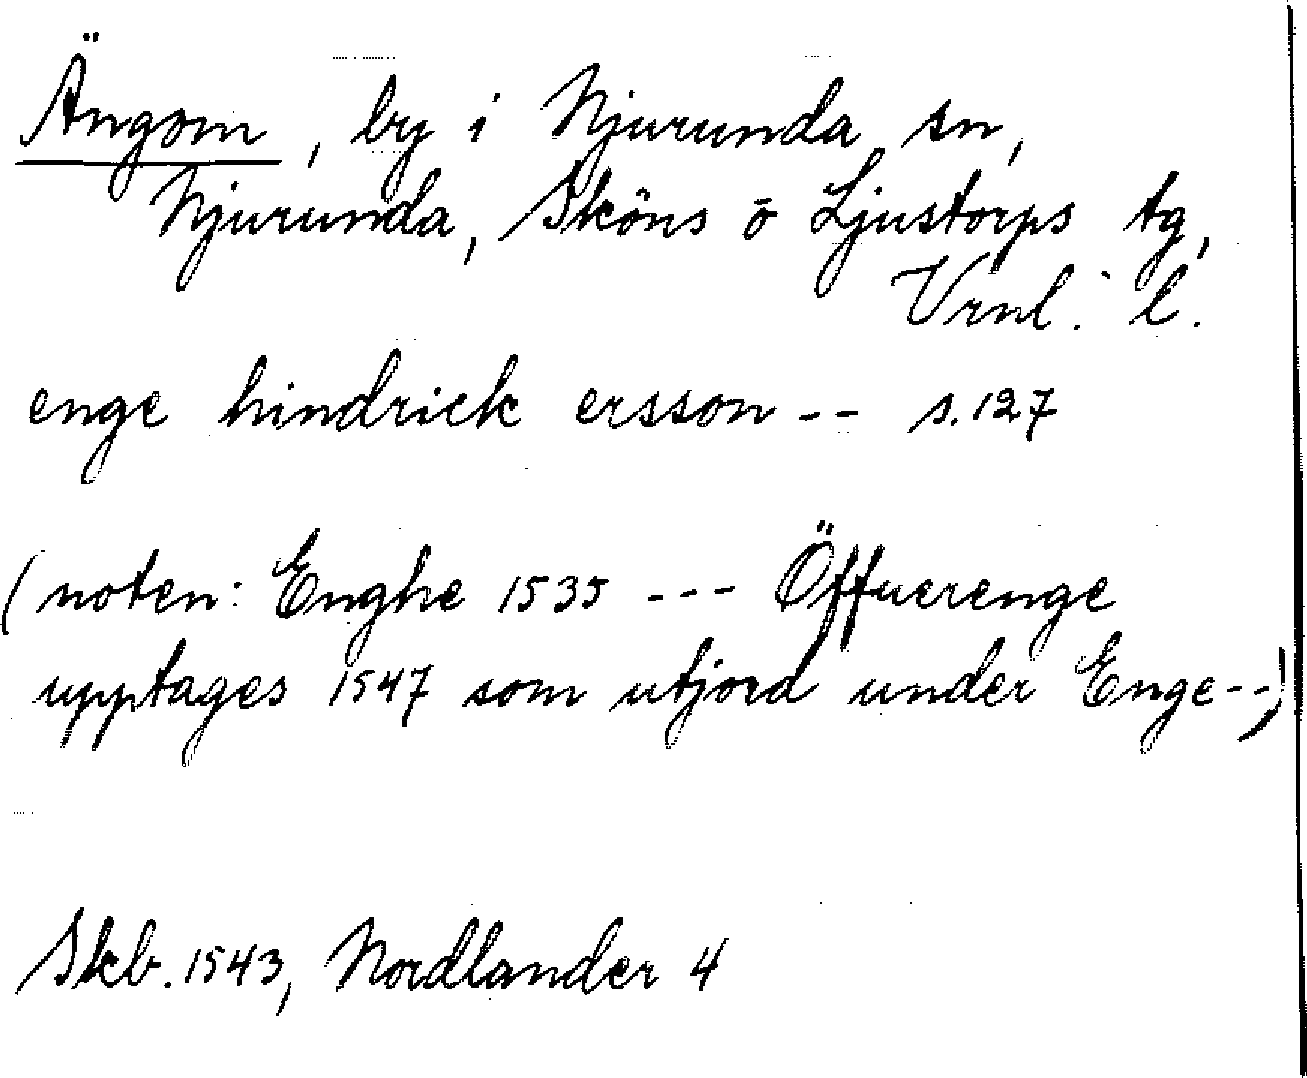 Ängom, by i Njurunda sn,
Njurunda, Sköns o Ljustorps tg,
Vrnl. l.
enge hindrick ersson -- s. 127
(noten: Enghe 1535 --- Öffuerenge
upptages 1547 som utjord under Enge--)
Skb. 1543, Nordlander 4